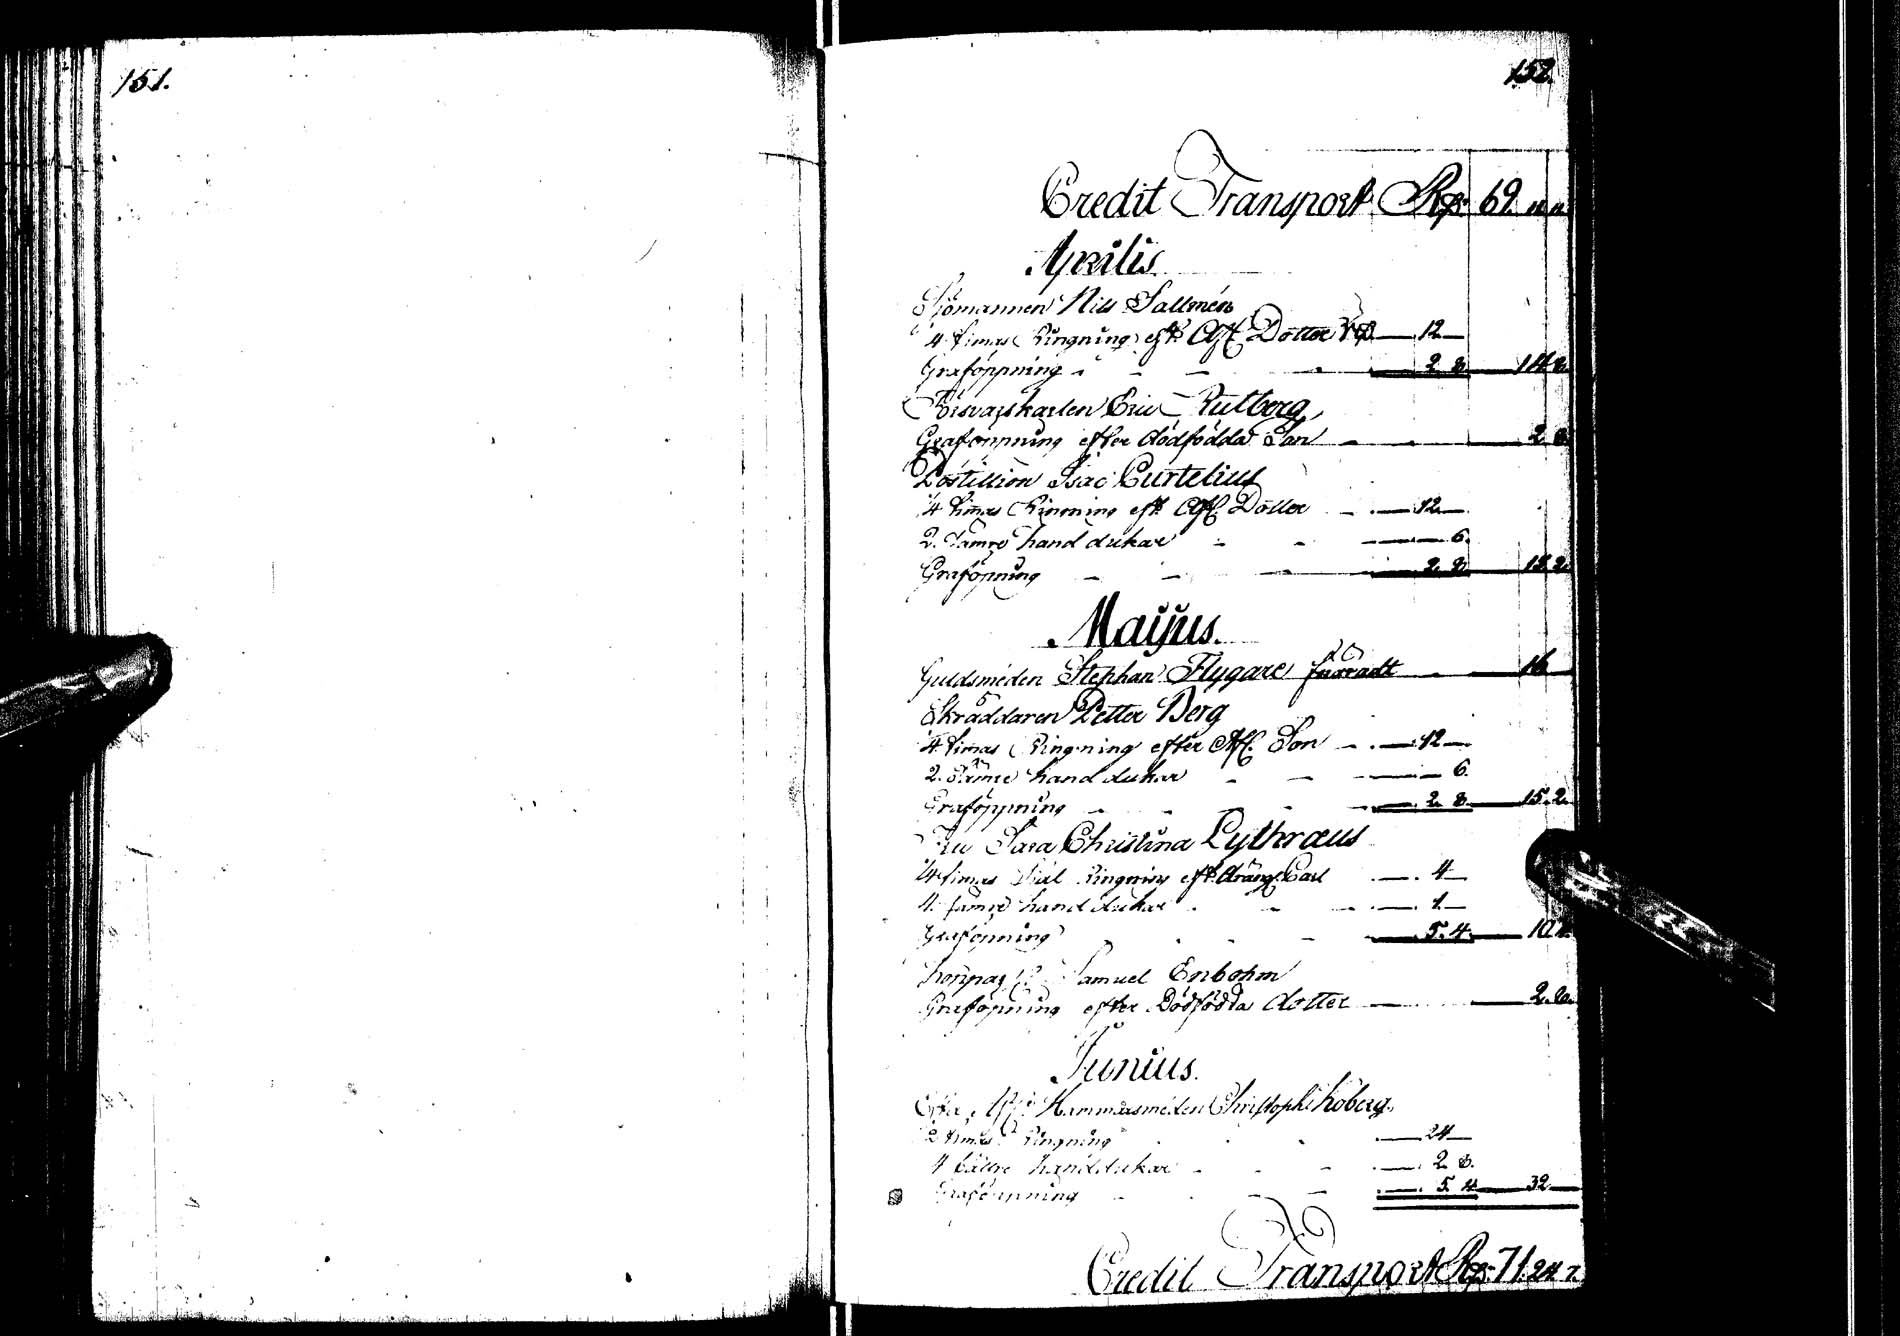 151.
152.
Credit Transport Rd 69. 11. 11.
Aprilis.
Sjömannen Nils Sallmén
1/4 timas Ringning eft. Afl. Dotter — 12 —
Graföppning - - - 2. 8. — 14. 8.
Försvarskarlen Eric Rutberg
Graföppning efter dödfödda Son — 2. 8.
Postillion Isac Curtelius
1/4 timas Ringning eft. Afl. Dotter — 12 —
2. Sämre handdukar - - — 6.
Graföpning - - - 2. 8. — 15. 2.
Maijus.
Guldsmeden Stephan Flygare — 16
Skräddaren Petter Berg
1/4 timas Ringning efter Afl. Son — 12 —
2. Sämre handdukar - - — 6.
Graföppning - - - 2. 8. — 15. 2.
Fru Sara Christina Lythræus
1/4 timas Ringning eft. dräng. Carl — 4 —
4. sämre handdukar - - — 1. —
Graföpning - - - 5. 4. — 10. 4.
Samuel Enbohm
Graföpning efter Dödfödda dotter — 2. 8.
Junius.
Efter Afl. Hammarsmeden Christoph. Koberg.
1/2 timas Ringning - - — 24 —
4 bättre handdukar - - — 2. 8.
Graföppning - - - 5. 4 — 32 —
Credit Transport Rd 71. 24. 7.